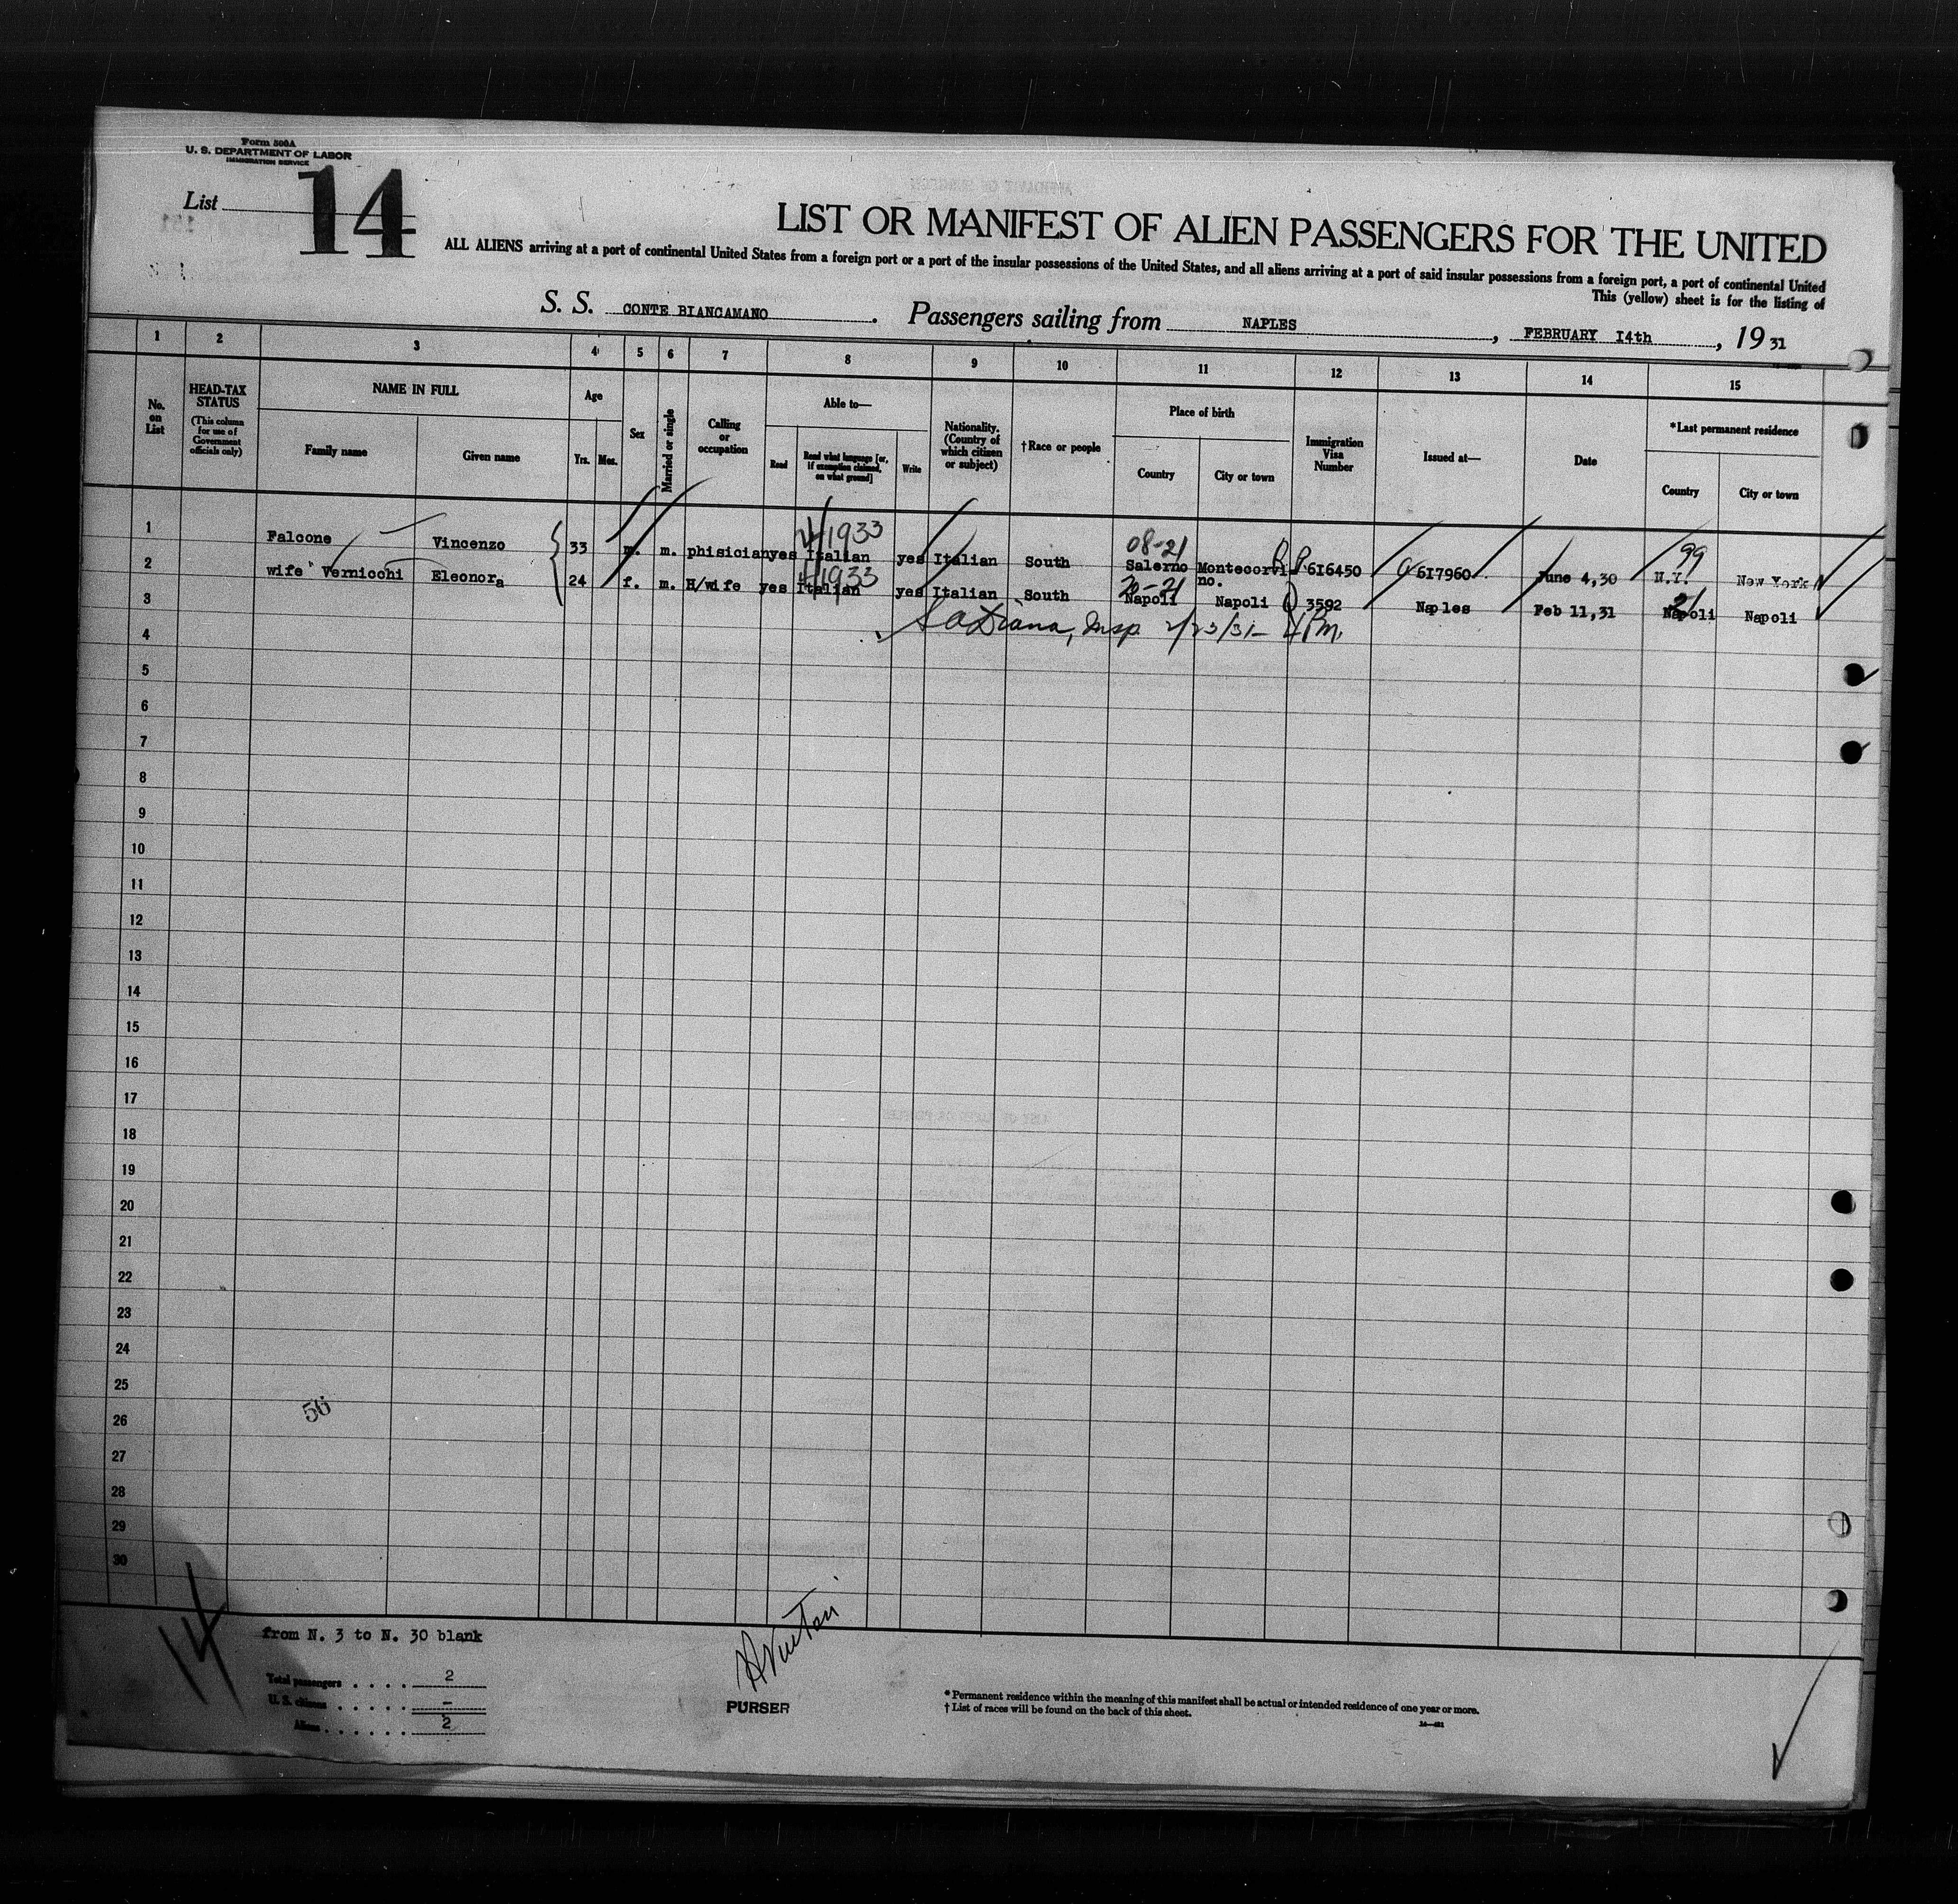 Form 500A
U. S. DEPARTMENT OF LABOR
IMMIGRATION SERVICE
List 14
LIST OR MANIFEST OF ALIEN PASSENGERS FOR THE UNITED
ALL ALIENS arriving at a port of continental United States from a foreign port or a port of the insular possessions of the United States, and all aliens arriving at a port of said insular possessions from a foreign port, a port of continental United
This (yellow) sheet is for the listing of
S. S. CONTE BIANCAMANO. Passengers sailing from NAPLES, FEBRUARY I4th, 19 31
1 2 3 4 5 6 7 8 9 10 11 12 13 14 15
No. on List
HEAD-TAX STATUS
(This column for use of Government officials only)
NAME IN FULL
Family name Given name
Age
Yrs. Mos.
Sex
Married or single
Calling or occupation
Able to—
Read Read what language [or, if exemption claimed, on what ground] Write
Nationality. (Country of which citizen or subject)
†Race or people
Place of birth
Country City or town
Immigration Visa Number
Issued at—
Date
*Last permanent residence
Country City or town
4/1933 08-21 99
1 Falcone Vincenzo 33 m. m. phisician yes Italian yes Italian South Salerno Montecorvi no. 6I6450 6I7960 June 4,30 N.Y. New York
4/1933 21
2 wife Vernicchi Eleonora 24 f. m. H/wife yes Italian yes Italian South Napoli Napoli 3592 Naples Feb 11,31 Napoli Napoli
3
4 Diana, Insp. 2/23/31- 4 P.M.
5
6
7
8
9
10
11
12
13
14
15
16
17
18
19
20
21
22
23
24
25
26
56
27
28
29
30
14
from N. 3 to N. 30 blank
Total passengers . . . . 2
U. S. citizens . . . . . –
Aliens . . . . . . 2
PURSER
* Permanent residence within the meaning of this manifest shall be actual or intended residence of one year or more.
† List of races will be found on the back of this sheet.